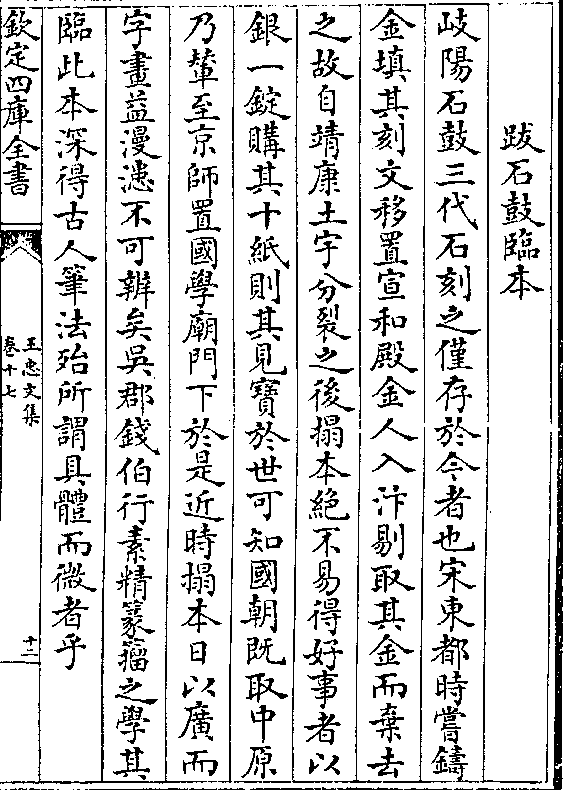 跋石鼓臨本
岐陽石鼓三代石刻之僅存於今者也宋東都時嘗鑄
金填其刻文移置宣和殿金人入汴剔取其金而棄去
之故自靖康土宇分裂之後搨本絶不易得好事者以
銀一錠購其十紙則其見寶於世可知國朝既取中原
乃輦至京師置國學廟門下於是近時搨本日以廣而
字畫益漫漶不可辨矣吳郡錢伯行素精篆籀之學其
臨此本深得古人筆法殆所謂具體而微者乎
欽定四庫全書
王忠文集
卷十七
十二